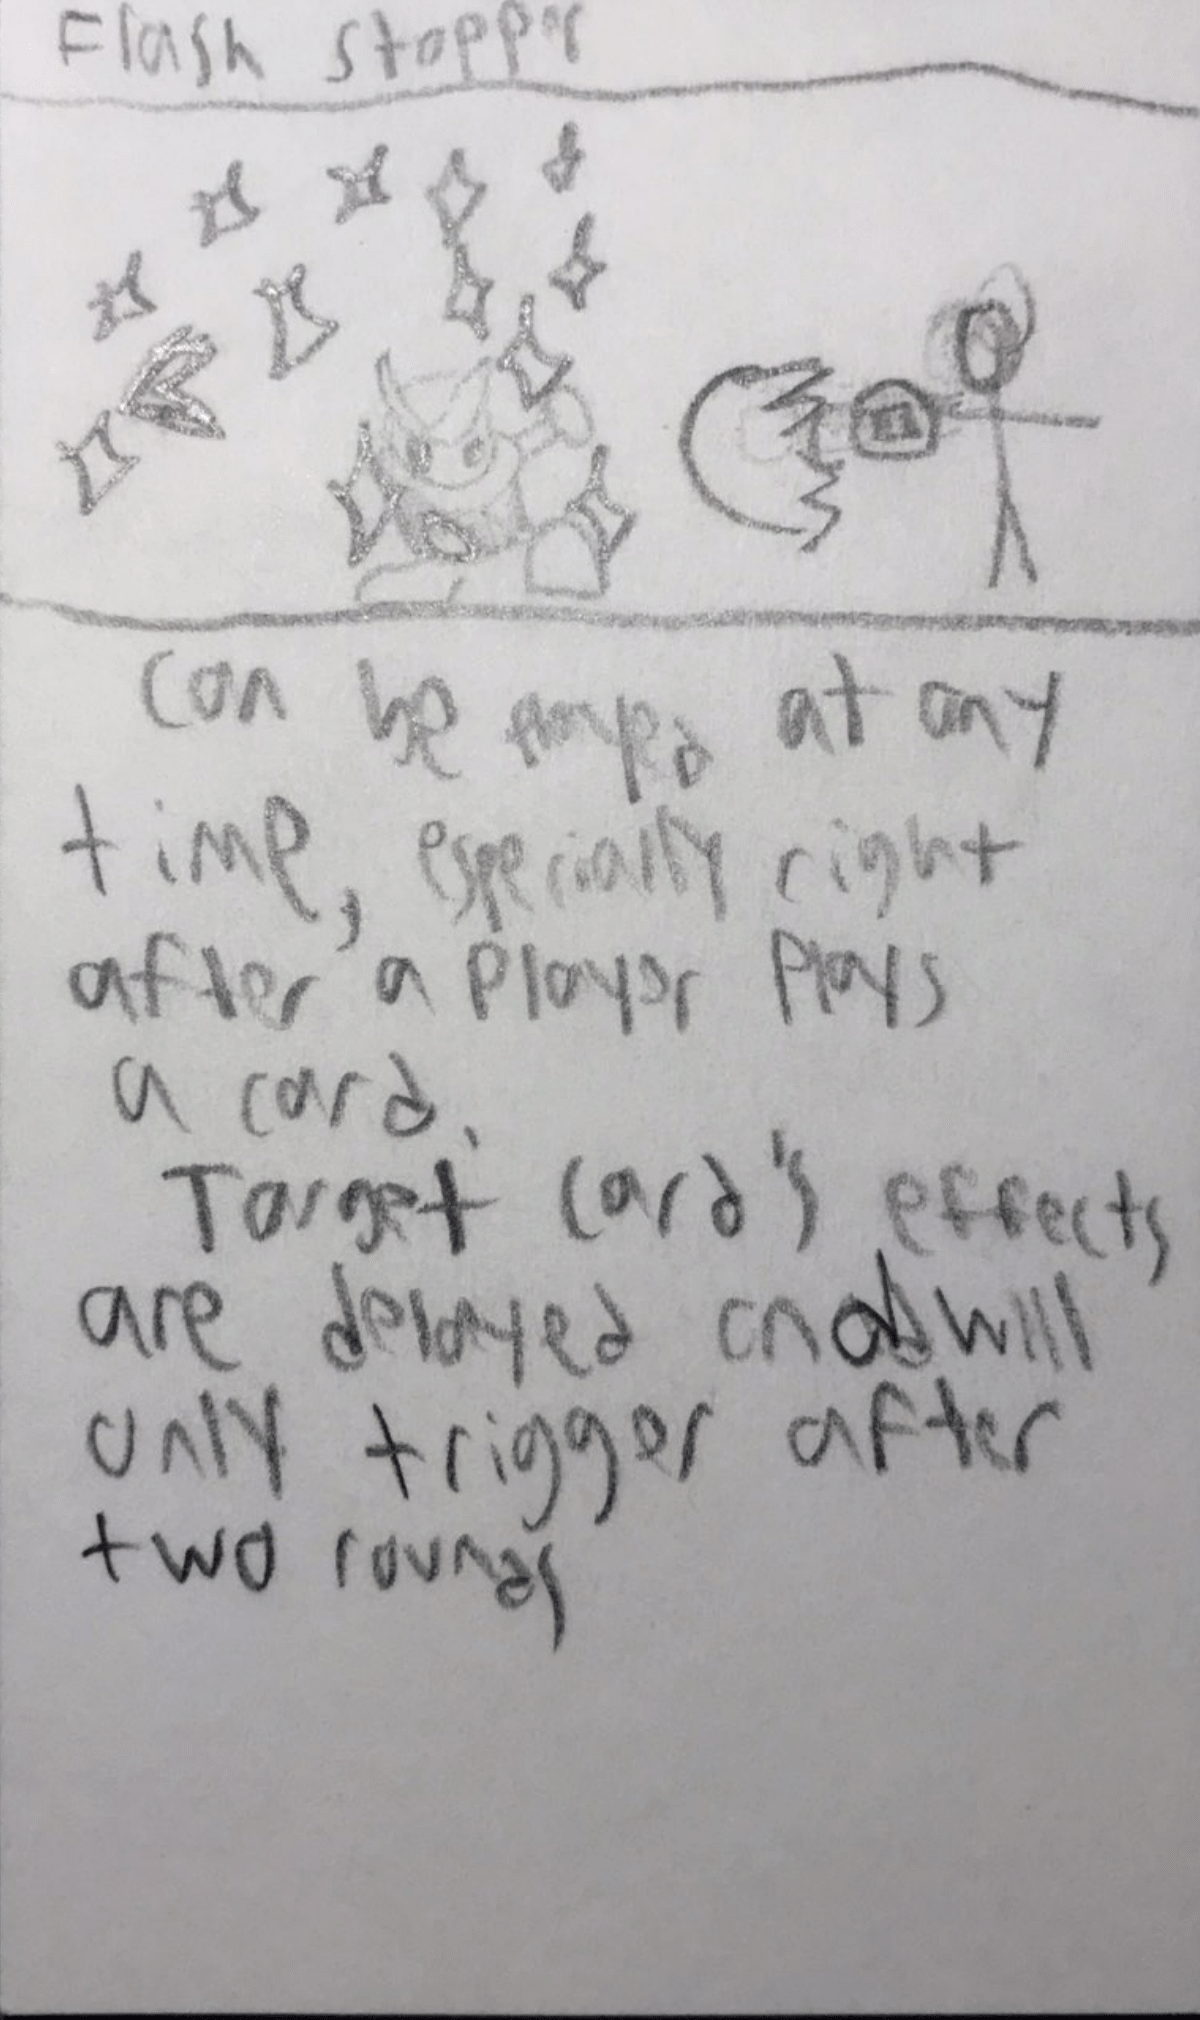 Flash stopper
Can be at any
time, especially right
after a player plays
a card.
Target card's effects
are delayed and will
only trigger after
two rounds